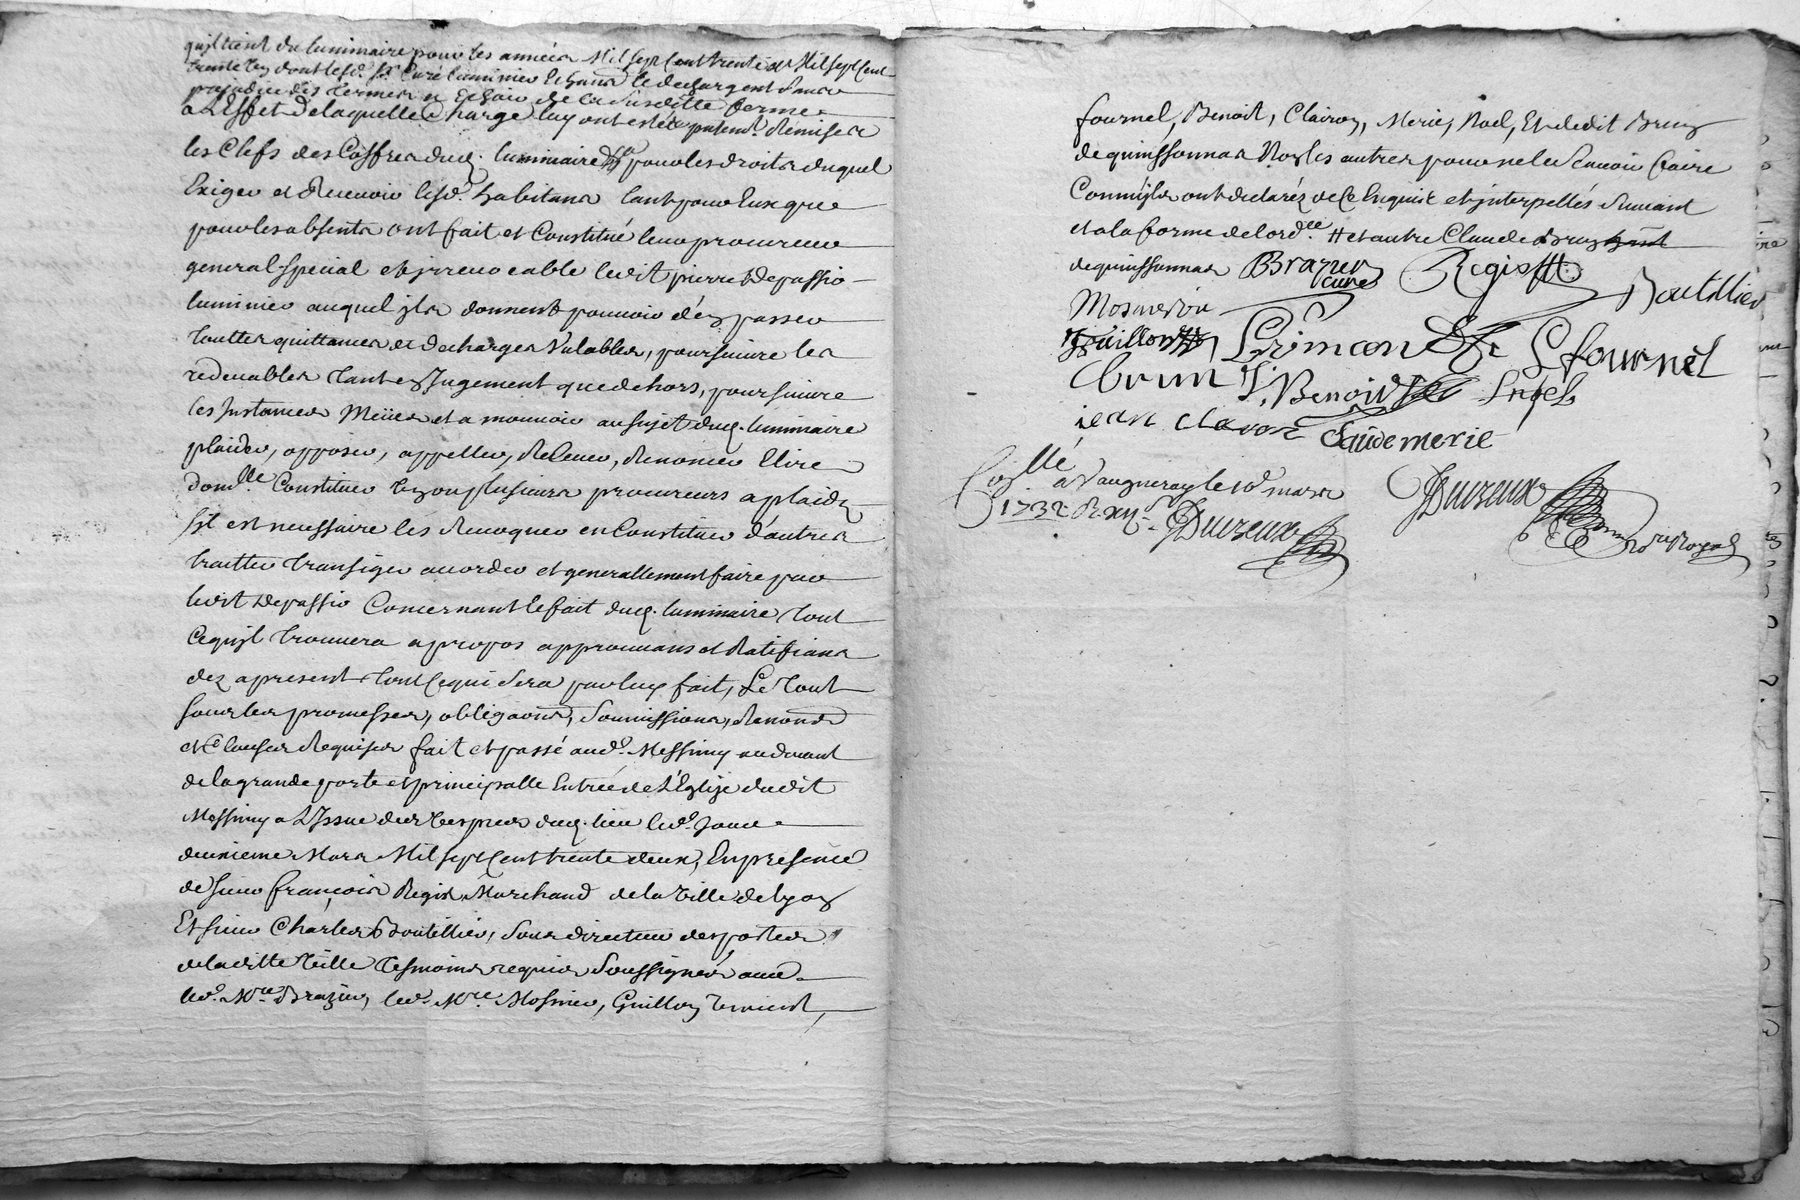 qu'jl tient du luminaire pour les années Mil sept Cent trente et Mil sept Cent
trente dont led. sr. Curé luminier le dechargent sans
prejudice des termes a Echoir de la Susditte ferme
a L'Effet de laquelle Charge luy ont esté presentt. Remises
les Clefs des Coffres dud. luminaire pour les droits duquel
Exiger et Recevoir lesd. habitans tant pour Eux que
pour les absents ont fait et Constitué leur procureur
general special et jrrevocable ledit pierre Depassio
luminier auquel jls donnent pouvoir d'en passer
touttes quittances et decharges Valables, poursuivre les
redevables tant en Jugement que dehors, poursuivre
les Jnstances Meües et a mouvoir au sujet dud. luminaire
plaider, opposer, appeller, Relever, Renoncer Elire
domlle. Constituer un ou plusieurs procureurs a plaids
s'jl est necessaire les Revoquer en Constituer d'autres
traitter transiger accorder et generallement faire par
ledit Depassio Concernant le fait dud. luminaire tout
Ce qu'jl trouvera a propos approuvans et Ratifians
dez a present tout Ce qui sera par luy fait, Le tout
sous les promesses, obligaons, Soumissions, Renons
et Clauses Requises fait et passé aud. Messimy au devant
de la grande porte et principalle Entrée de L'Eglize dudit
Messimy a L'Jssue des Vespres dud. lieu led. Jour
deuxieme Mars Mil sept Cent trente deux, En presence
de sieur françois Regis Marchand de la Ville de Lyon
Et sieur Charles Boutillier, Sous directeur des postes
de laditte Ville tesmoins requis Soussignés avec
led. Mre. Brazier, led. Mre. Mosnier, Guillon,
fournel, Benoit, Clairon, Merie, Noel, Et ledit Brun
de quinssonnas Non les autres pour ne le Scavoir faire
Comm'jls ont declaréz de Ce Enquis et jnterpellés Suivant
et a la forme de l'ordce. # et autre Claude Brun
de quinssonnas Brazier curé Regis Boutillier
Mosnerin
Guillon Grimand L fournel
brun J. Benoid
jean claron Claude merie
Collé. a Vaugneray le 10e. mars
1732 R. xij s. Duzeux Duzeux Nore. Royal